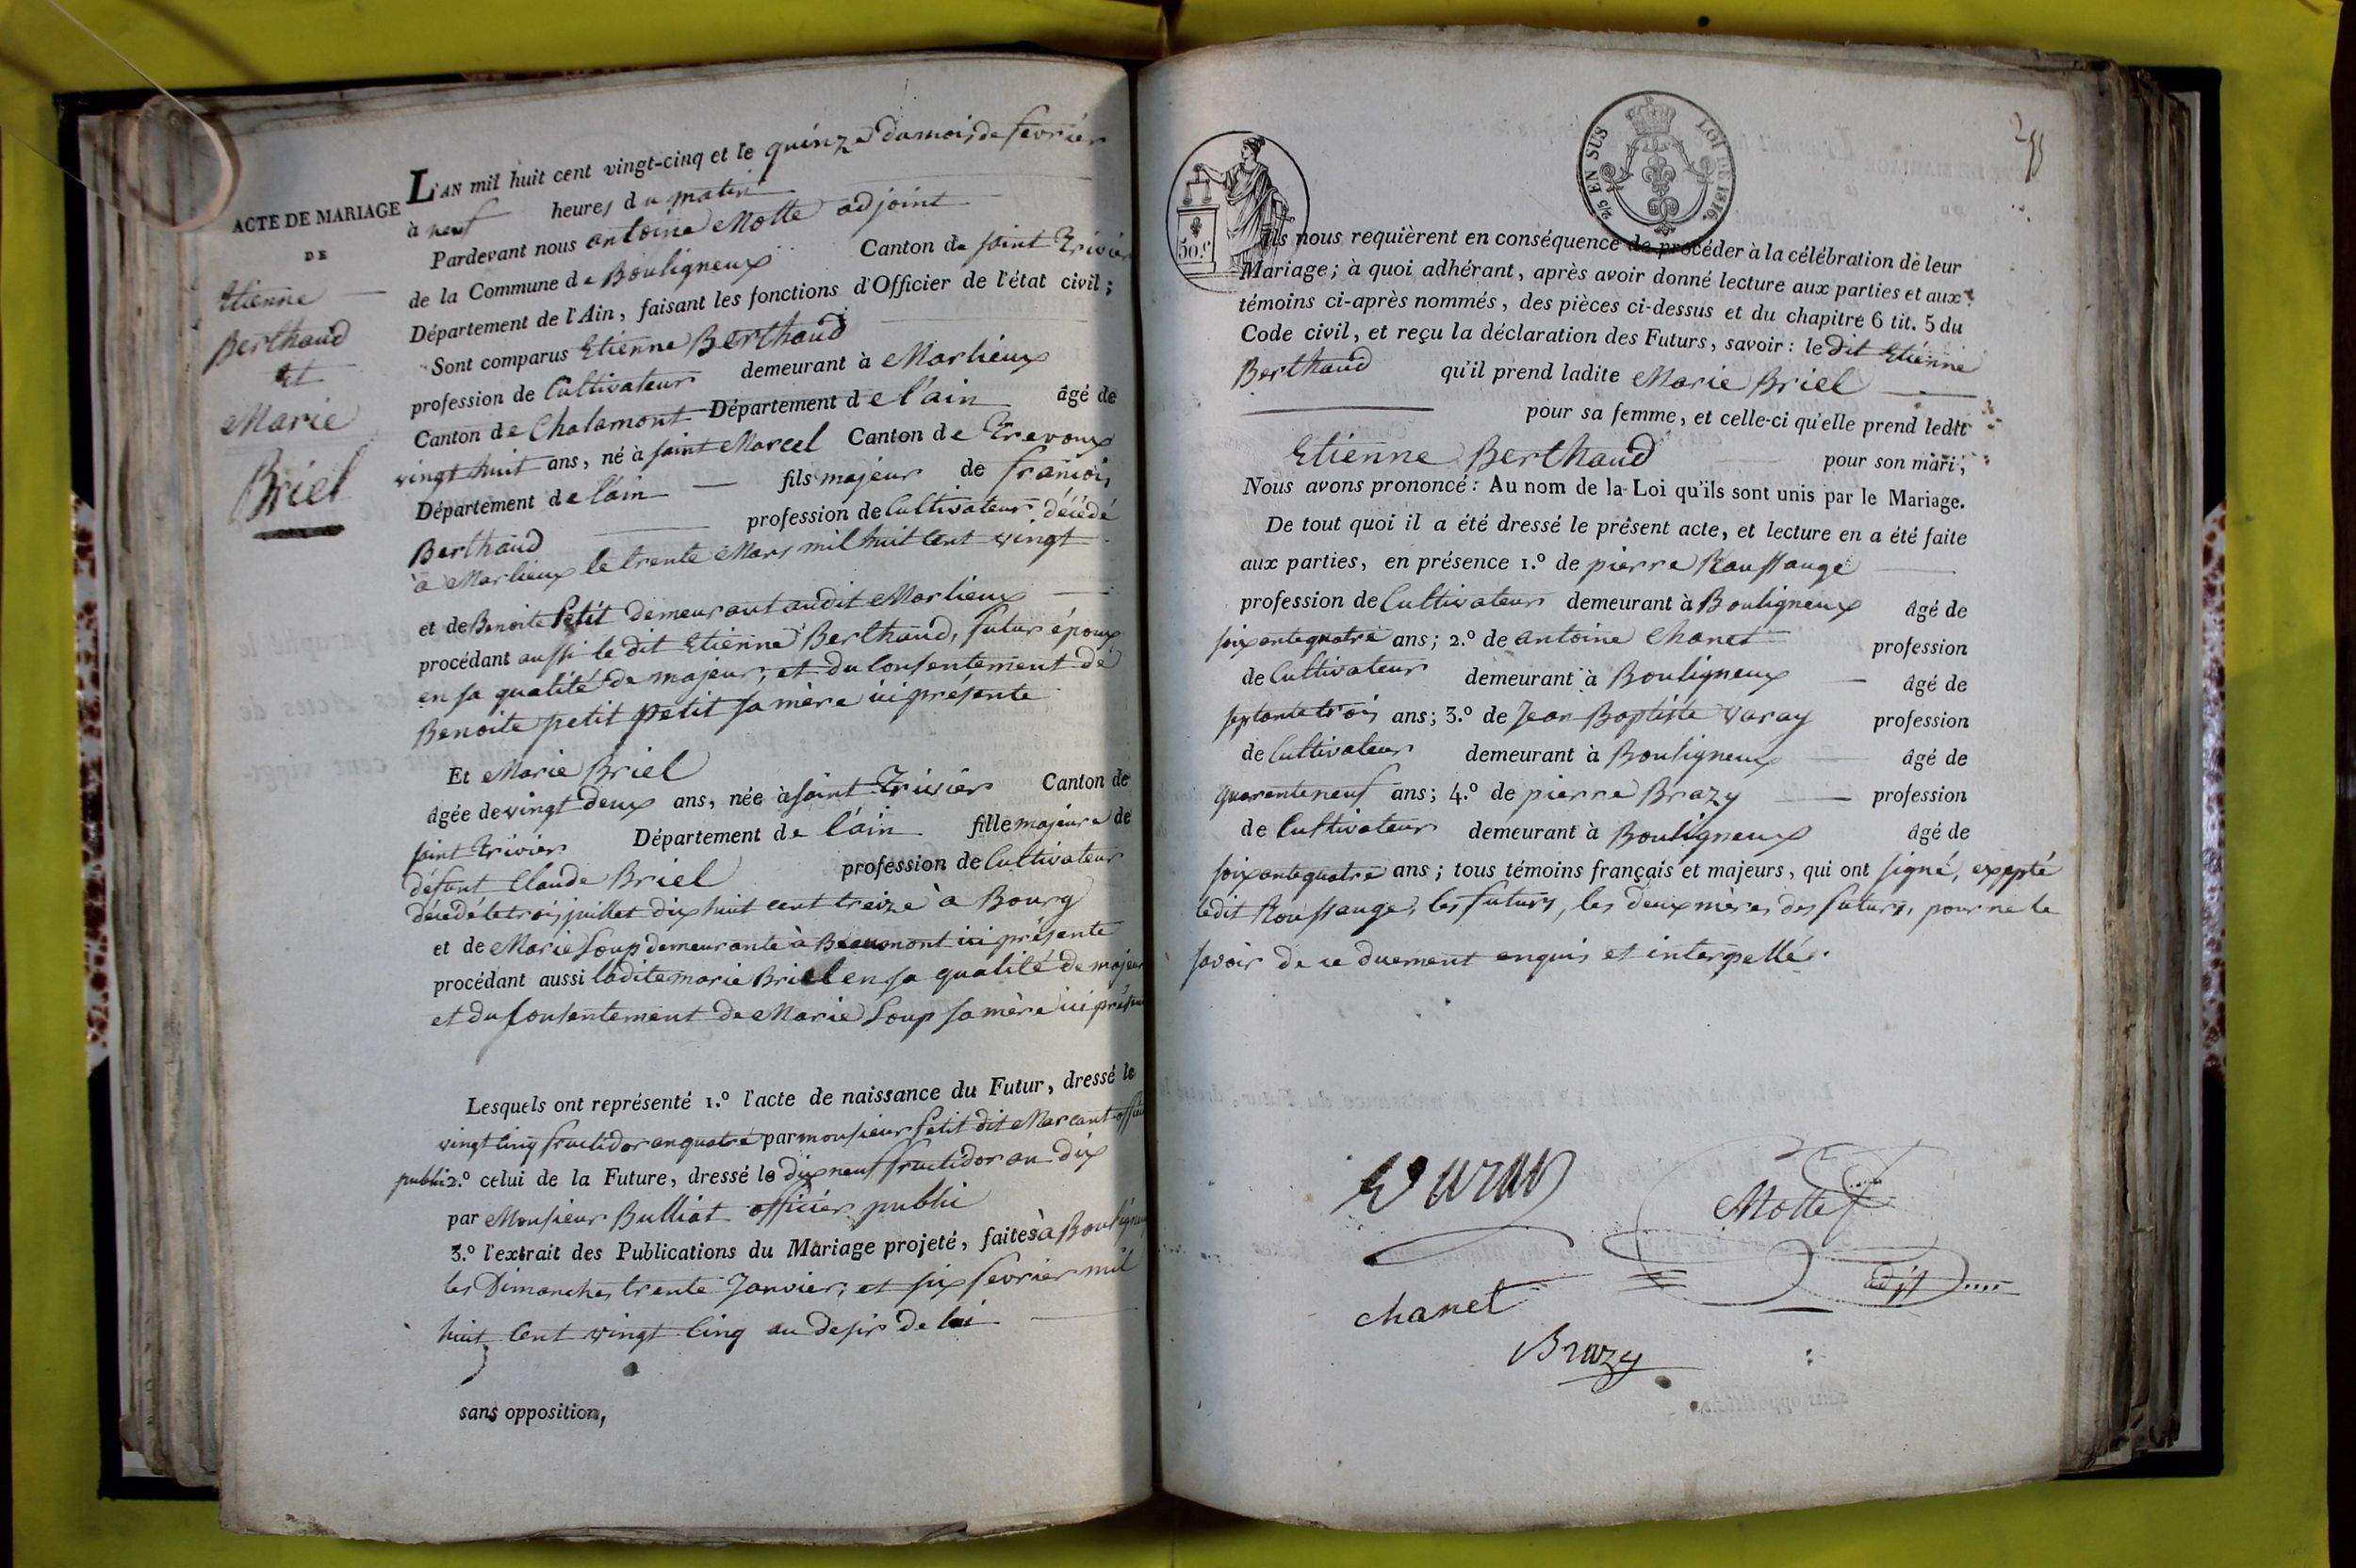 ACTE DE MARIAGE
DE
Etienne
Berthaud
et
Marie
Briel
L'AN mil huit cent vingt-cinq et le quinze du mois de fevrier
à neuf heures du matin
Pardevant nous antoine Motte adjoint
de la Commune de Bouligneux Canton de saint Trivier
Département de l'Ain, faisant les fonctions d'Officier de l'état civil;
Sont comparus Etienne Berthaud
profession de Cultivateur demeurant à Marlieux
Canton de Chalamont Département de l'ain âgé de
vingt huit ans, né à saint Marcel Canton de Trevoux
Département de l'ain fils majeur de francois
Berthaud profession de Cultivateur décédé
à Marlieux le trente Mars mil huit cent vingt
et de Benoite Petit demeurant audit Marlieux
procédant aussi le dit Etienne Berthaud, futur époux
en sa qualité de majeur, et du Consentement de
Benoite petit petit sa mère ici présente
Et Marie Briel
âgée de vingt deux ans, née à saint Trivier Canton de
saint Trivier Département de l'ain fille majeure de
défunt Claude Briel profession de Cultivateur
décédé le trois juillet dix huit cent treize à Bourg
et de Marie Loup demeurante à Beaumont ici présente
procédant aussi ladite marie Briel en sa qualité de majeur
et du Consentement de Marie Loup sa mère ici présen
Lesquels ont représenté 1.º l'acte de naissance du Futur, dressé le
vingt cinq fructidor an quatre par monsieur Petit dit Marcant offici
publi 2.º celui de la Future, dressé le dix neuf fructidor an dix
par Monsieur Bulliat officier publi
3.º l'extrait des Publications du Mariage projeté, faites à Bouligneu
les Dimanches trente Janvier, et six fevrier mil
huit Cent vingt Cinq au desir de loi
sans opposition,
25 EN SUS
LOI DE 1816.
50 c
Ils nous requièrent en conséquence de procéder à la célébration de leur
Mariage; à quoi adhérant, après avoir donné lecture aux parties et aux
témoins ci-après nommés, des pièces ci-dessus et du chapitre 6 tit. 5 du
Code civil, et reçu la déclaration des Futurs, savoir: le dit Etienne
Berthaud qu'il prend ladite Marie Briel
pour sa femme, et celle-ci qu'elle prend ledit
Etienne Berthaud pour son mari;
Nous avons prononcé: Au nom de la Loi qu'ils sont unis par le Mariage.
De tout quoi il a été dressé le présent acte, et lecture en a été faite
aux parties, en présence 1.º de pierre Roussange
profession de Cultivateur demeurant à Bouligneux âgé de
soixante quatre ans; 2.º de antoine Chanet profession
de Cultivateur demeurant à Bouligneux âgé de
septante trois ans; 3.º de Jean Baptiste Varay profession
de Cultivateur demeurant à Bouligneux âgé de
quarente neuf ans; 4.º de pierre Brazy profession
de Cultivateur demeurant à Bouligneux âgé de
soixante quatre ans; tous témoins français et majeurs, qui ont signé, expepté
ledit Roussange, les futurs, les deux mères des futurs, pour ne le
savoir de ce duement enquis et interpellé.
Motte
adjt
chanet
Brazy